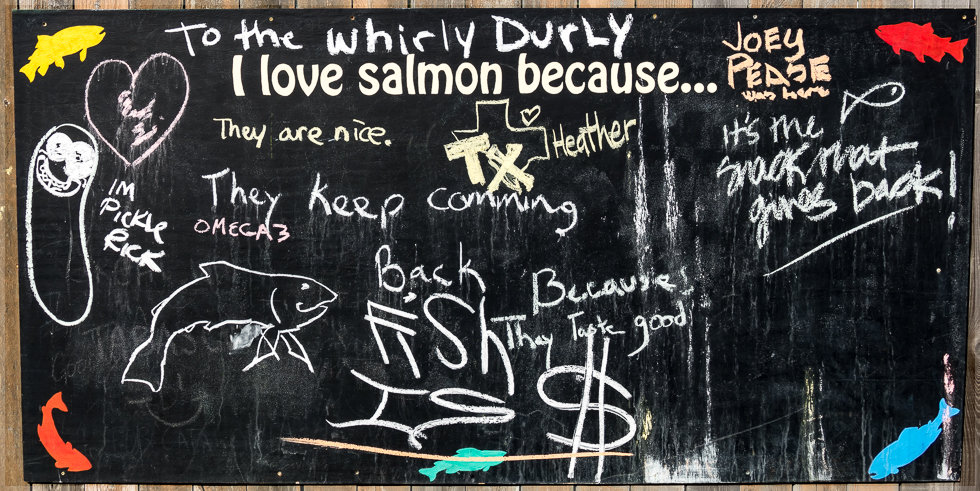 To the Whirly DurLy
I love salmon because...
JOEY
PEASE
was here
They are nice.
TX
Heather
It's the
snack that
gives back!
IM
PICKLE
RICK
They keep comming
Back
OMEGA 3
Because
They Taste good
fish
IS
$